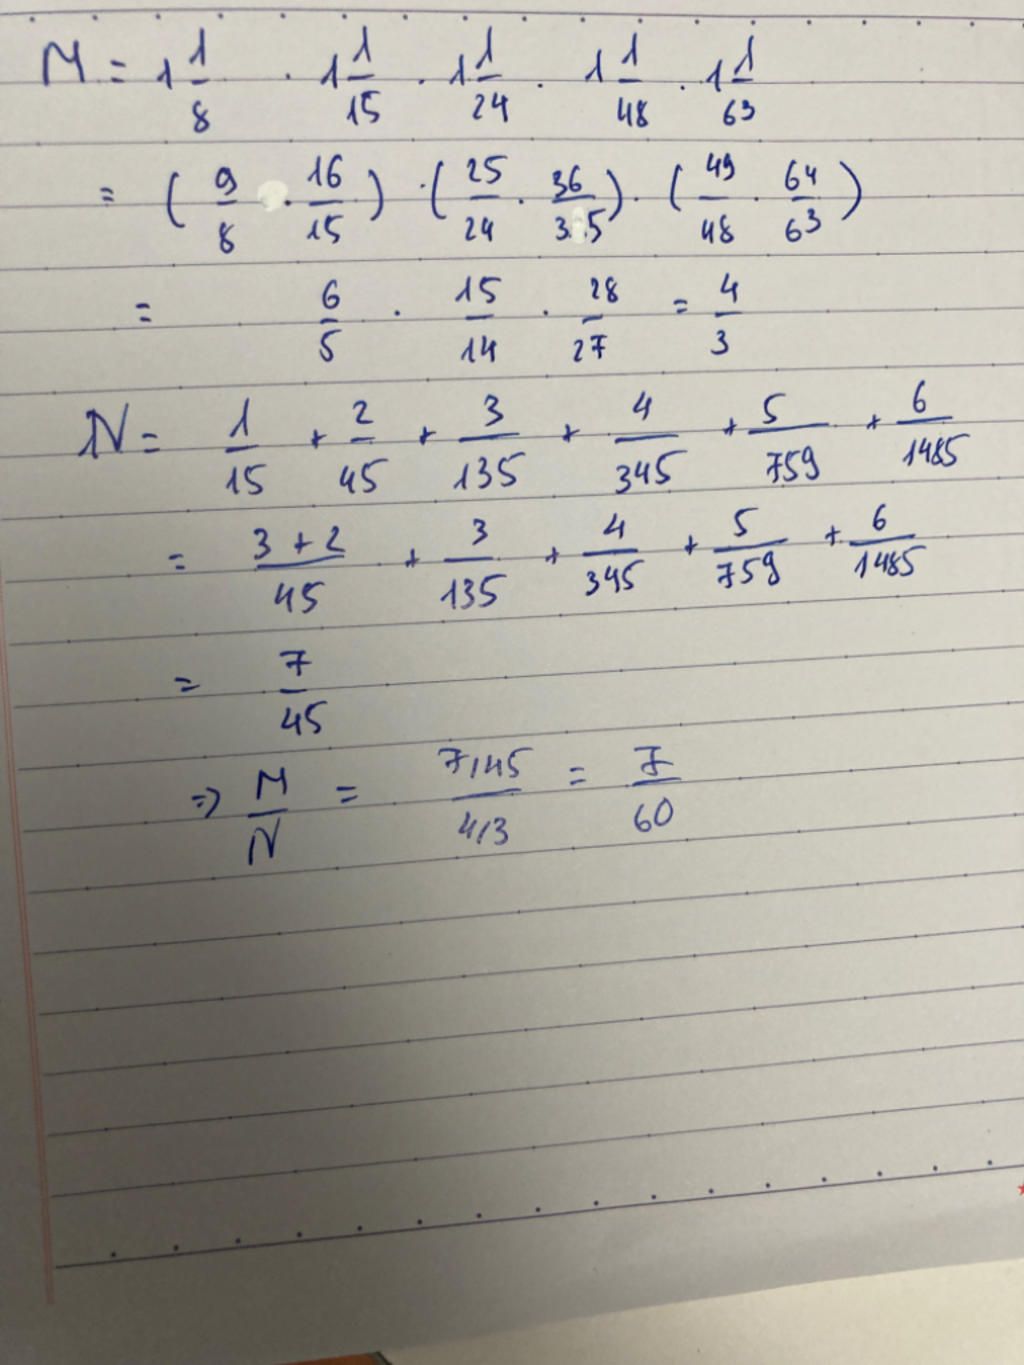 M = 1 1/8 · 1 1/15 · 1 1/24 · 1 1/48 · 1 1/63
= ( 9/8 · 16/15 ) · ( 25/24 · 36/35 ) · ( 49/48 · 64/63 )
= 6/5 · 15/14 · 28/27 = 4/3
N = 1/15 + 2/45 + 3/135 + 4/345 + 5/759 + 6/1485
= (3 + 2)/45 + 3/135 + 4/345 + 5/759 + 6/1485
= 7/45
⇒ M/N = 7/45 / 4/3 = 7/60